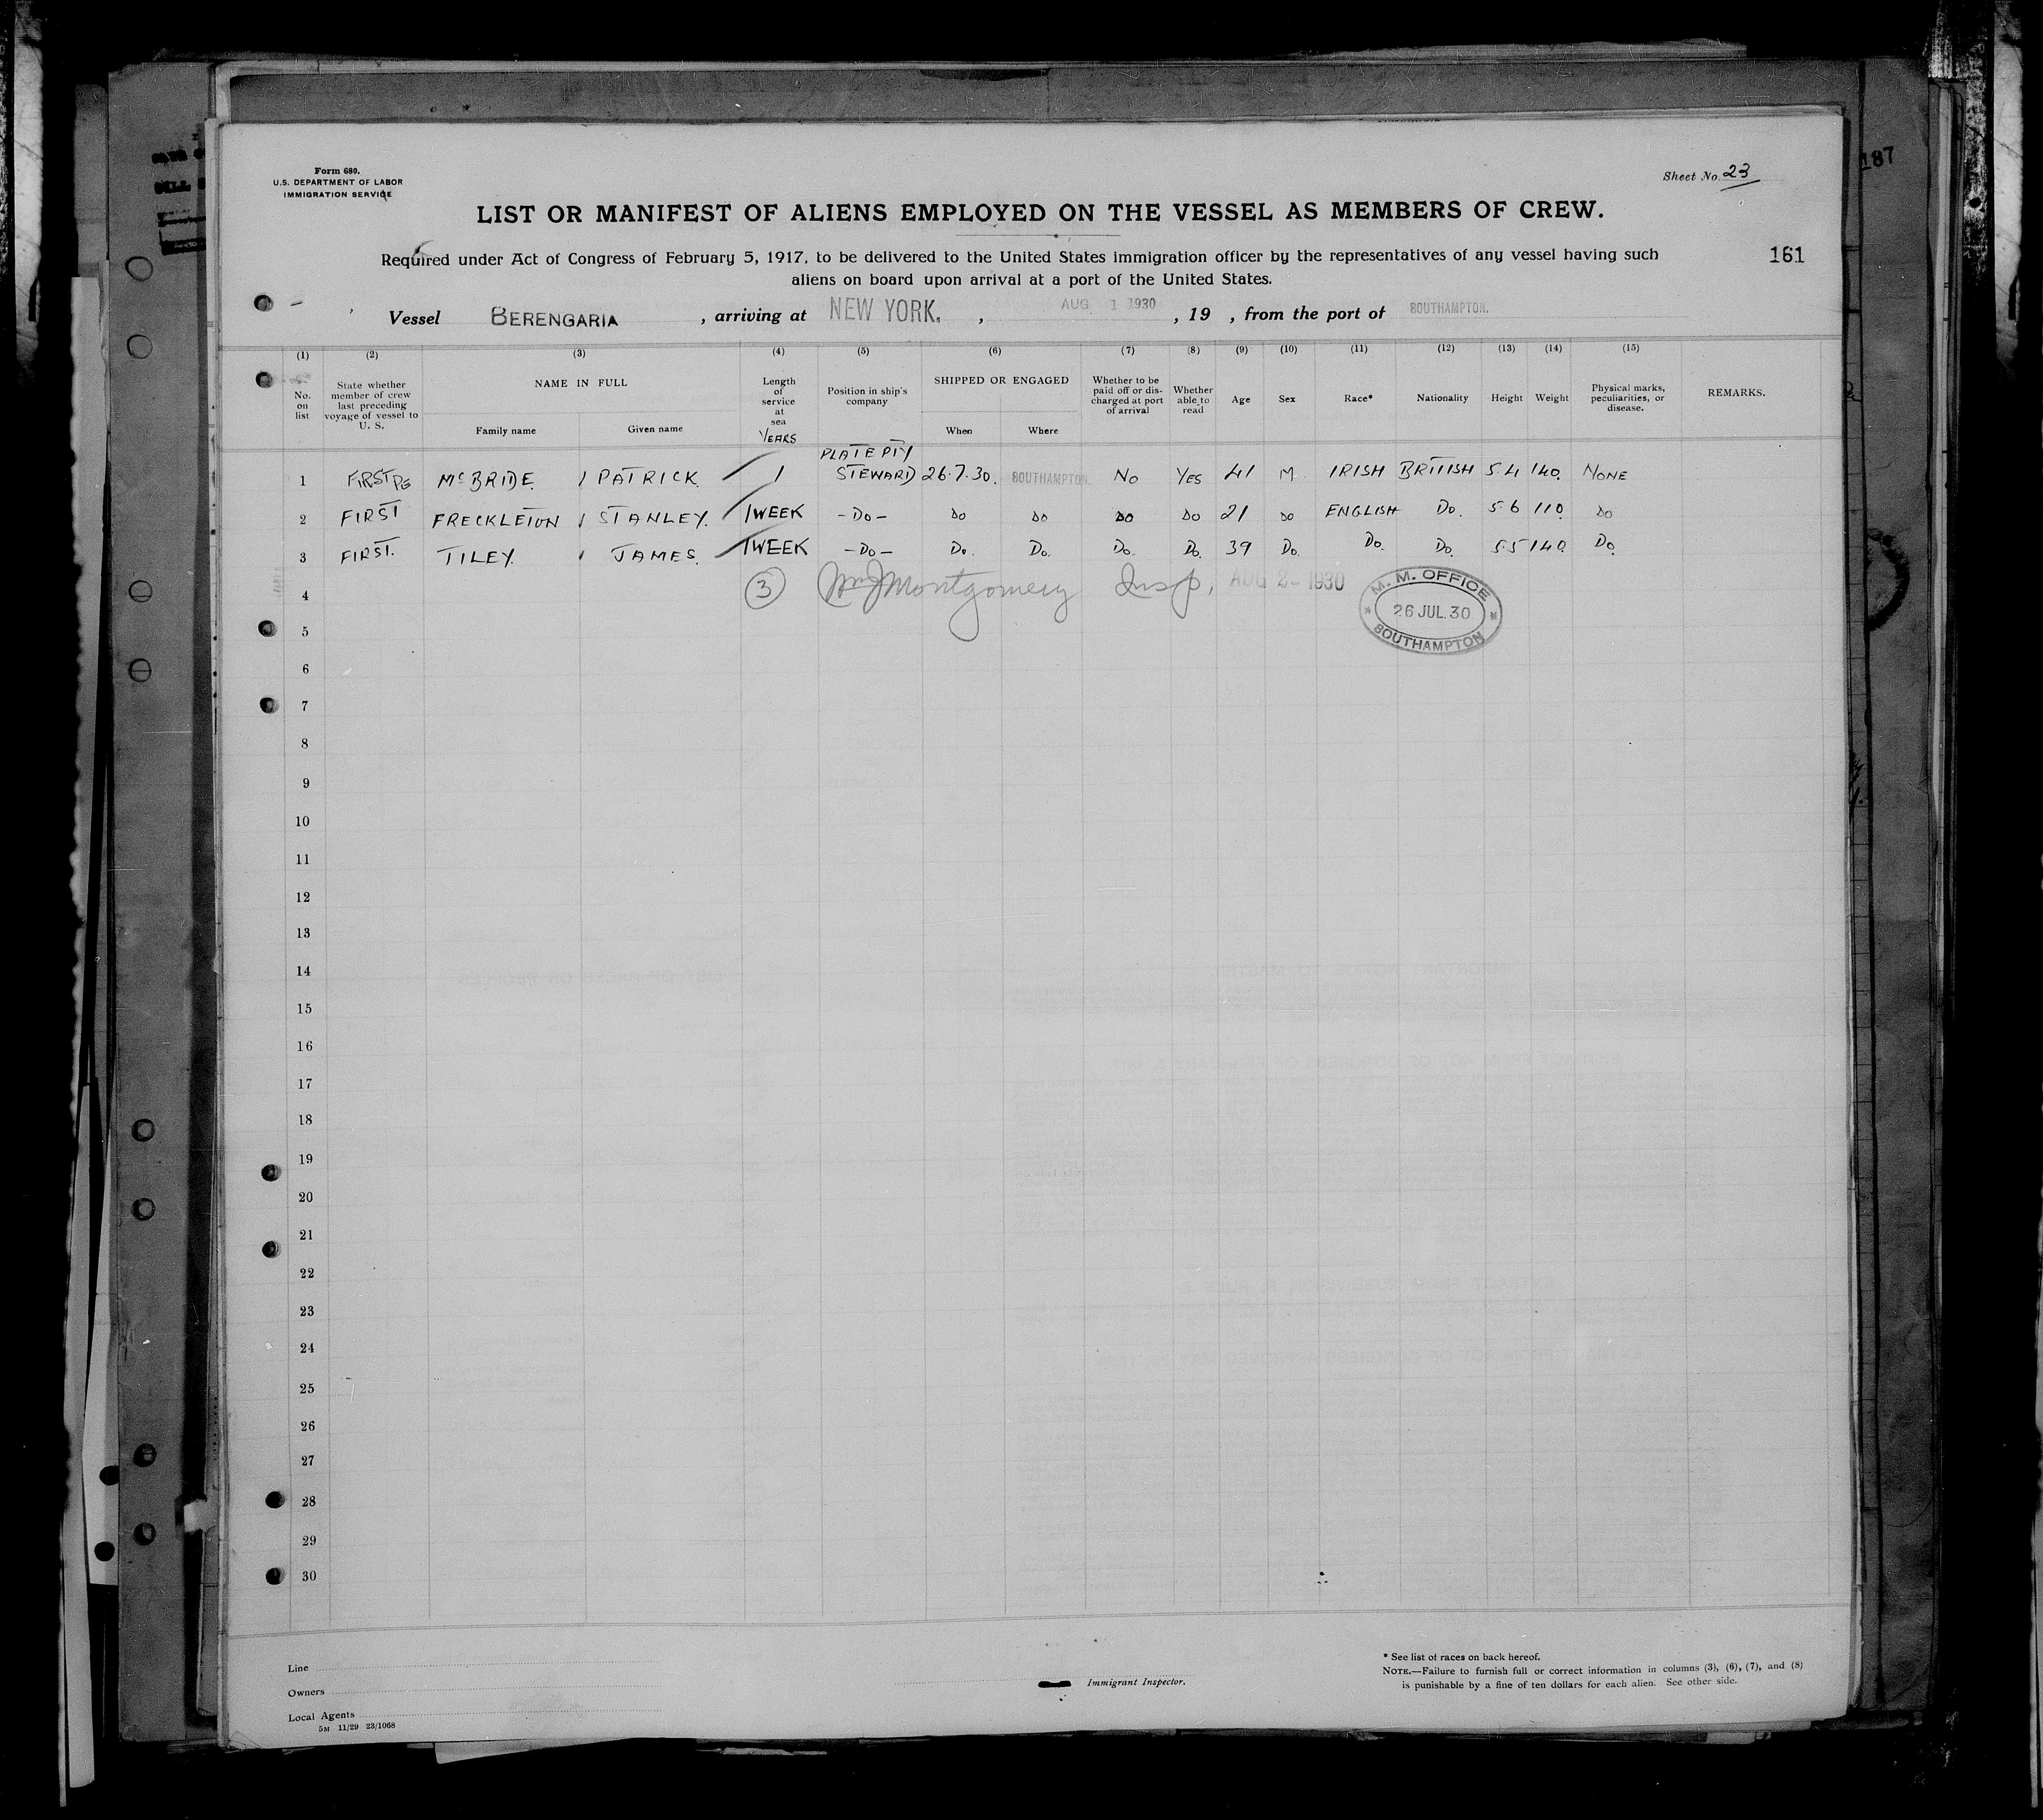 187
Form 680.
U.S. DEPARTMENT OF LABOR
IMMIGRATION SERVICE
Sheet No. 23
LIST OR MANIFEST OF ALIENS EMPLOYED ON THE VESSEL AS MEMBERS OF CREW.
Required under Act of Congress of February 5, 1917, to be delivered to the United States immigration officer by the representatives of any vessel having such
aliens on board upon arrival at a port of the United States.
161
Vessel BERENGARIA, arriving at NEW YORK., AUG 1 1930, 19 , from the port of SOUTHAMPTON.
(1) (2) (3) (4) (5) (6) (7) (8) (9) (10) (11) (12) (13) (14) (15)
No. on list
State whether member of crew last preceding voyage of vessel to U. S.
NAME IN FULL
Family name
Given name
Length of service at sea
YEARS
Position in ship's company
SHIPPED OR ENGAGED
When
Where
Whether to be paid off or discharged at port of arrival
Whether able to read
Age
Sex
Race*
Nationality
Height
Weight
Physical marks, peculiarities, or disease.
REMARKS.
PLATE PTY
1 FIRST PG McBRIDE / PATRICK 1 STEWARD 26.7.30. SOUTHAMPTON. No YES 41 M. IRISH BRITISH 5.4 140. NONE
2 FIRST FRECKLETON / STANLEY. 1 WEEK -Do- Do Do Do Do 21 Do ENGLISH Do. 5 6 110. Do
3 FIRST. TILEY. / JAMES. 1 WEEK -Do- Do. Do. Do. Do. 39 Do. Do. Do. 5.5 140. Do.
4 (3) Wm J Montgomery Insp. AUG 2- 1930
M. M. OFFICE
26 JUL.30
SOUTHAMPTON
5
6
7
8
9
10
11
12
13
14
15
16
17
18
19
20
21
22
23
24
25
26
27
28
29
30
Line
Owners
Local Agents
5M 11/29 23/1068
Immigrant Inspector.
* See list of races on back hereof.
NOTE.—Failure to furnish full or correct information in columns (3), (6), (7), and (8)
is punishable by a fine of ten dollars for each alien. See other side.